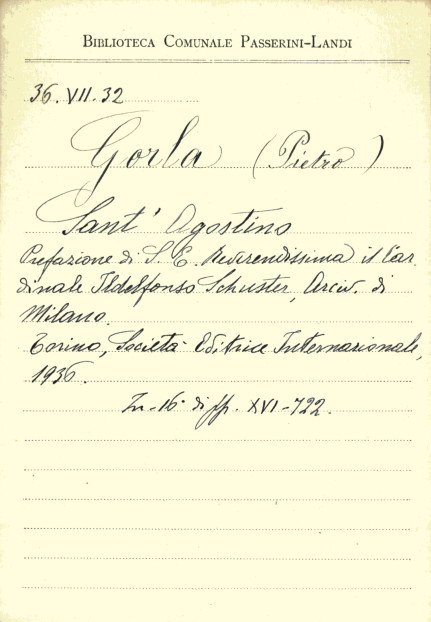 BIBLIOTECA COMUNALE PASSERINI-LANDI
36.VII.32
Gorla (Pietro)
Sant' Agostino
Prefazione di S. E. Reverendissima il Car
dinale Ildelfonso Schuster, Arciv. di
Milano.
Torino, Società Editrice Internazionale,
1936.
In-16° di pp. XVI-722.